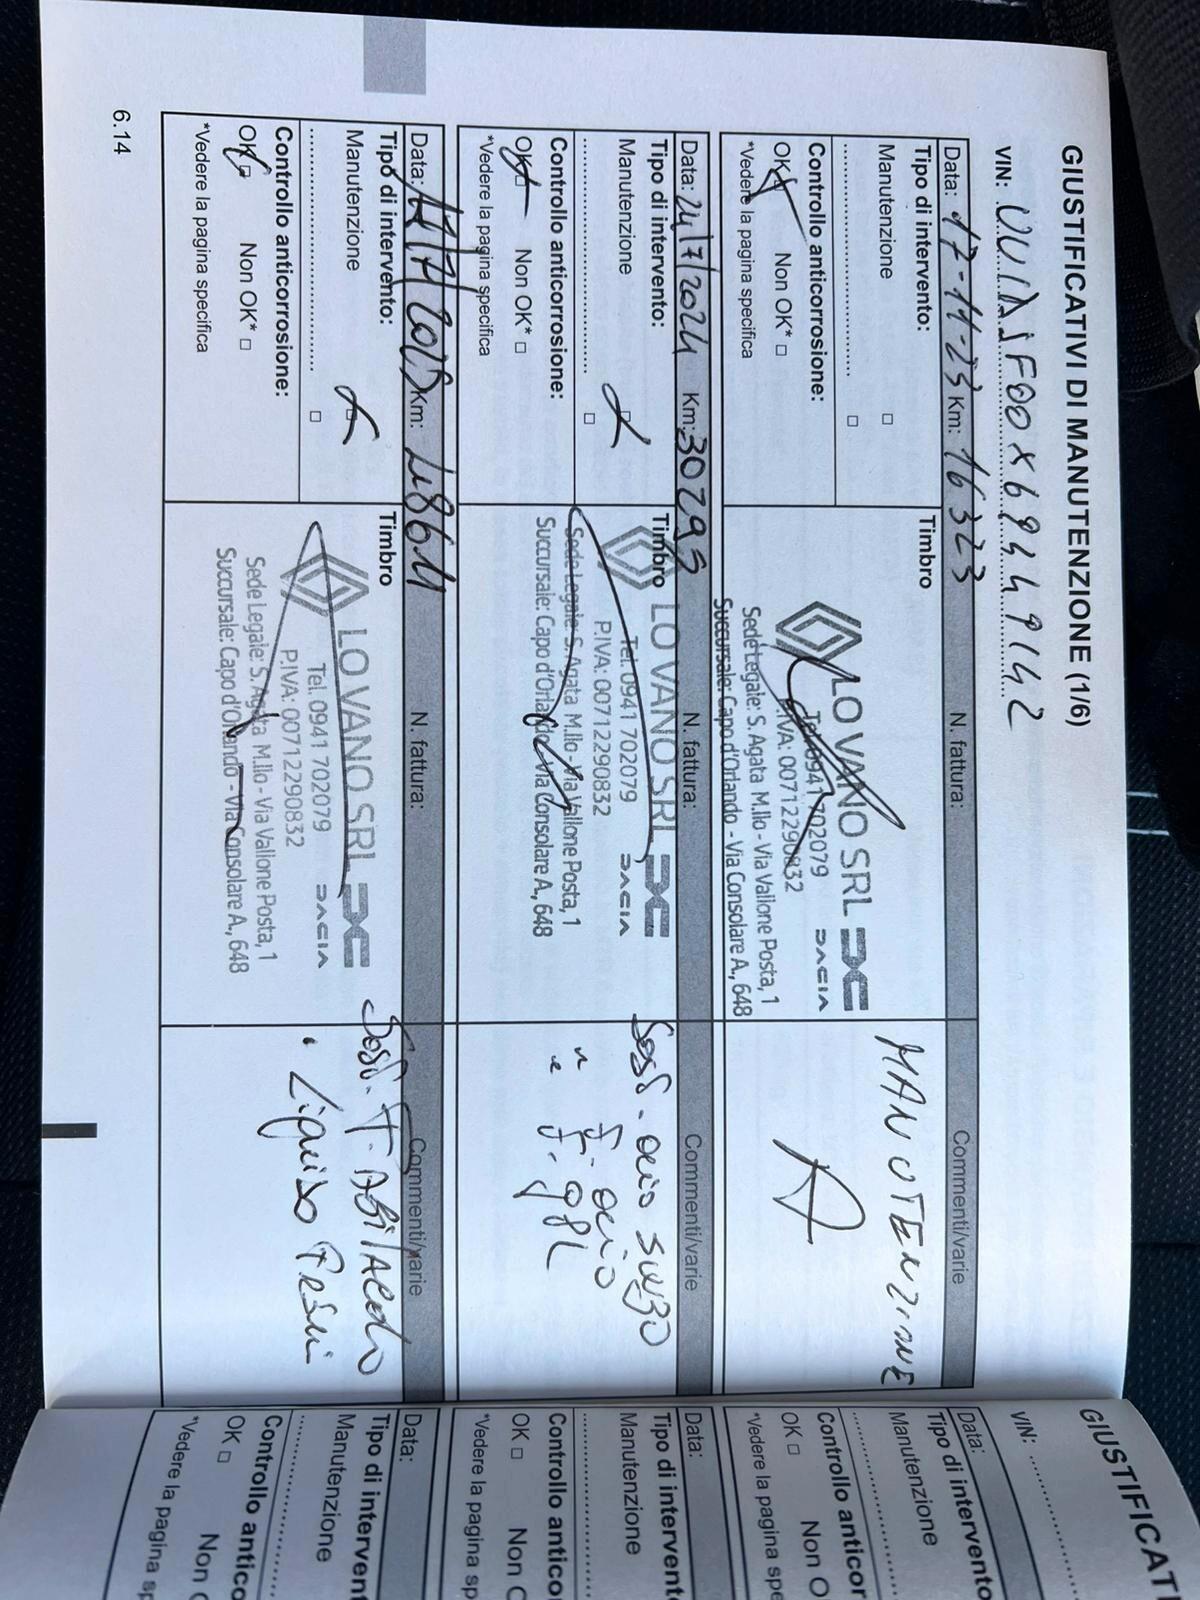 GIUSTIFICATIVI DI MANUTENZIONE (1/6)
VIN:
Data: 17-11-23 Km: 16323 N. fattura: Commenti/varie
Tipo di intervento: Timbro
Manutenzione □ MANUTENZIONE
.................... □
LO VANO SRL
DACIA
Tel. 0941 702079
P.IVA: 00712290832
Sede Legale: S. Agata M.llo - Via Vallone Posta, 1
Succursale: Capo d'Orlando - Via Consolare A., 648
Controllo anticorrosione:
OK □ Non OK* □
*Vedere la pagina specifica
Data: 24/7/2024 Km: 30295 N. fattura: Commenti/varie
Tipo di intervento: Timbro
Manutenzione □
.................... □
LO VANO SRL
DACIA
Tel. 0941 702079
P.IVA: 00712290832
Sede Legale: S. Agata M.llo - Via Vallone Posta, 1
Succursale: Capo d'Orlando - Via Consolare A., 648
Sost. olio 5W30
" F. olio
" F. gpl
Controllo anticorrosione:
OK □ Non OK* □
*Vedere la pagina specifica
Data: Km: N. fattura: Commenti/varie
Tipo di intervento: Timbro
Manutenzione □
.................... □
LO VANO SRL
DACIA
Tel. 0941 702079
P.IVA: 00712290832
Sede Legale: S. Agata M.llo - Via Vallone Posta, 1
Succursale: Capo d'Orlando - Via Consolare A., 648
Sost. F. Abitacolo
Liquido Freni
Controllo anticorrosione:
OK □ Non OK* □
*Vedere la pagina specifica
6.14
GIUSTIFICATI
VIN:
Data:
Tipo di intervento
Manutenzione
Controllo anticor
OK □ Non O
*Vedere la pagina spe
Data:
Tipo di intervent
Manutenzione
Controllo antico
OK □ Non
*Vedere la pagina sp
Data:
Tipo di interven
Manutenzione
Controllo antico
OK □ Non
*Vedere la pagina sp